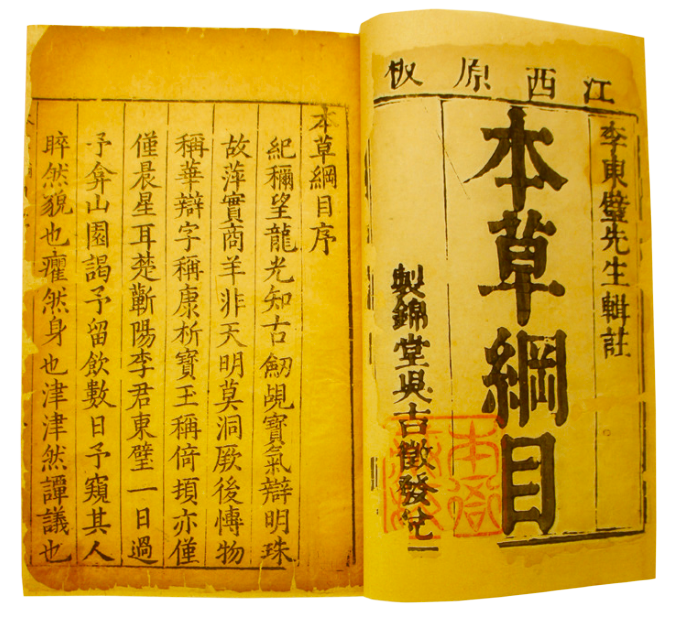 江西原板
李東璧先生輯註
本草綱目
製錦堂吳古徵發兌
本草綱目序
紀稱望龍光知古劒覘寶氣辯明珠
故萍實商羊非天明莫洞厥後慱物
稱華辯字稱康析寶玉稱倚頓亦僅
僅晨星耳楚蘄陽李君東璧一日過
予弇山園謁予留飲數日予窺其人
睟然貌也癯然身也津津然譚議也